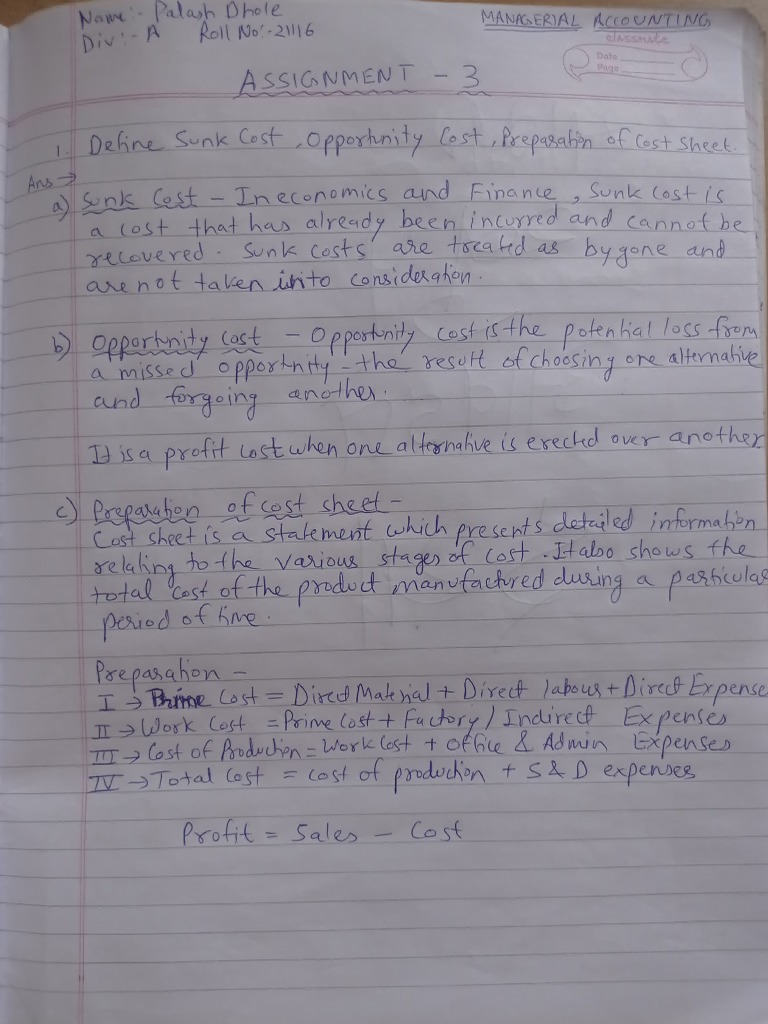 Name:- Palash Dhole
MANAGERIAL ACCOUNTING
Div:- A Roll No:- 21116
classmate
Date
Page
ASSIGNMENT - 3
1. Define Sunk Cost, Opportunity Cost, Preparation of Cost Sheet.
Ans →
a) Sunk Cost - In economics and Finance, Sunk cost is
a cost that has already been incurred and cannot be
recovered. Sunk costs are treated as bygone and
are not taken into consideration.
b) Opportunity Cost - Opportunity cost is the potential loss from
a missed opportunity - the result of choosing one alternative
and forgoing another.
It is a profit lost when one alternative is erected over another
c) Preparation of cost sheet -
Cost sheet is a statement which presents detailed information
relating to the various stages of cost. It also shows the
total cost of the product manufactured during a particular
period of time.
Preparation -
I → Prime Cost = Direct Material + Direct labour + Direct Expense
II → Work Cost = Prime Cost + Factory / Indirect Expenses
III → Cost of Production = Work Cost + office & Admin Expenses
IV → Total Cost = cost of production + S & D expenses
Profit = Sales - Cost